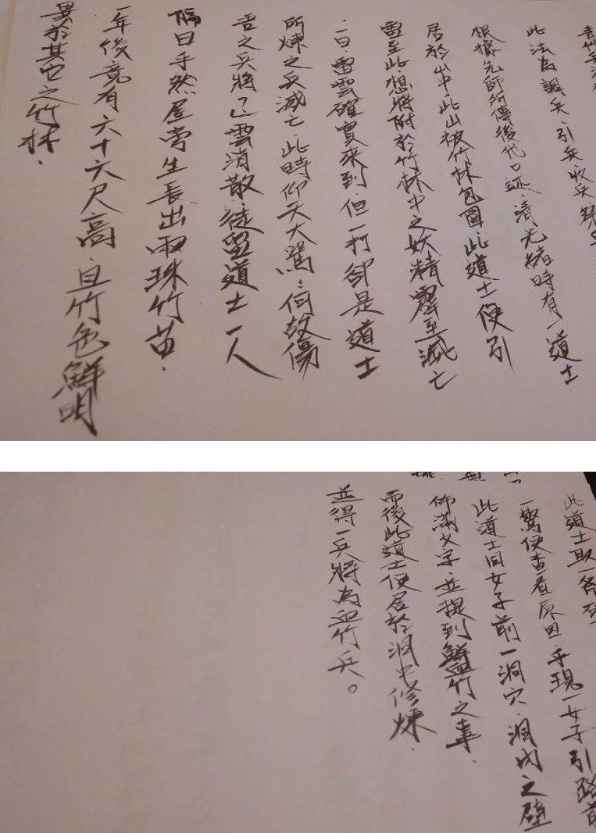 此法為調兵.引兵收兵
根據先師所傳後代口述.清光緒時有一道士
居於山中.此山被竹林包圍此道士便引
雷至此.想將附於竹林中之妖精靈至滅亡
.一日.雷雲確實來到但一打卻是道士
所煉之兵滅亡.此時仰天大罵:何故傷
吾之兵將.已雲消散.徒留道士一人
隔日手然屋旁生長出兩珠竹苗.
一年後竟有六十六尺高.且竹色鮮明
異於其它之竹林.
此道士取一
一驚便查看原因.手現一女子引路前
此道士同女子前一洞穴.洞內之壁
佈滿文字.並提到鮮血竹之事.
而後此道士便居於洞中修煉.
並得一兵將為血竹兵。